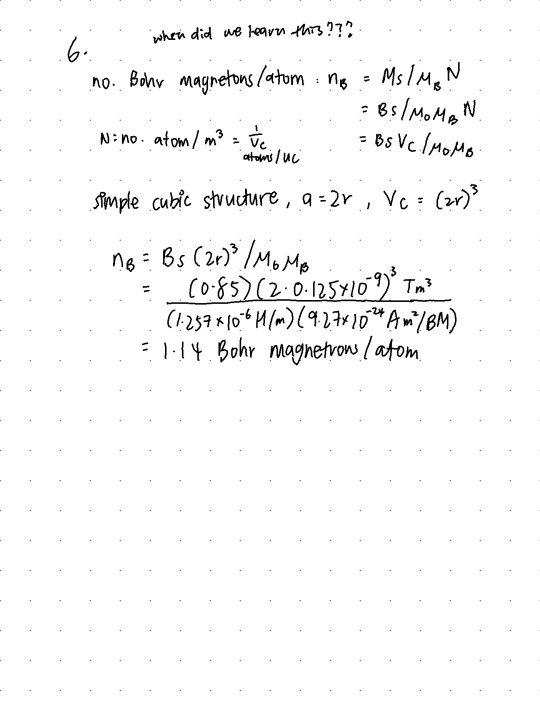 when did we learn this???
6.
no. Bohr magnetons/atom : n_B = Ms/μ_B N
= Bs/μ₀μ_B N
N: no. atom/m³ = 1/Vc atoms/uc = BsVc/μ₀μ_B
simple cubic structure, a = 2r, Vc = (2r)³
n_B = Bs(2r)³/μ₀μ_B
= (0.85)(2·0.125×10⁻⁹)³ Tm³
(1.257×10⁻⁶ H/m)(9.27×10⁻²⁴ Am²/BM)
= 1.14 Bohr magnetrons/atom